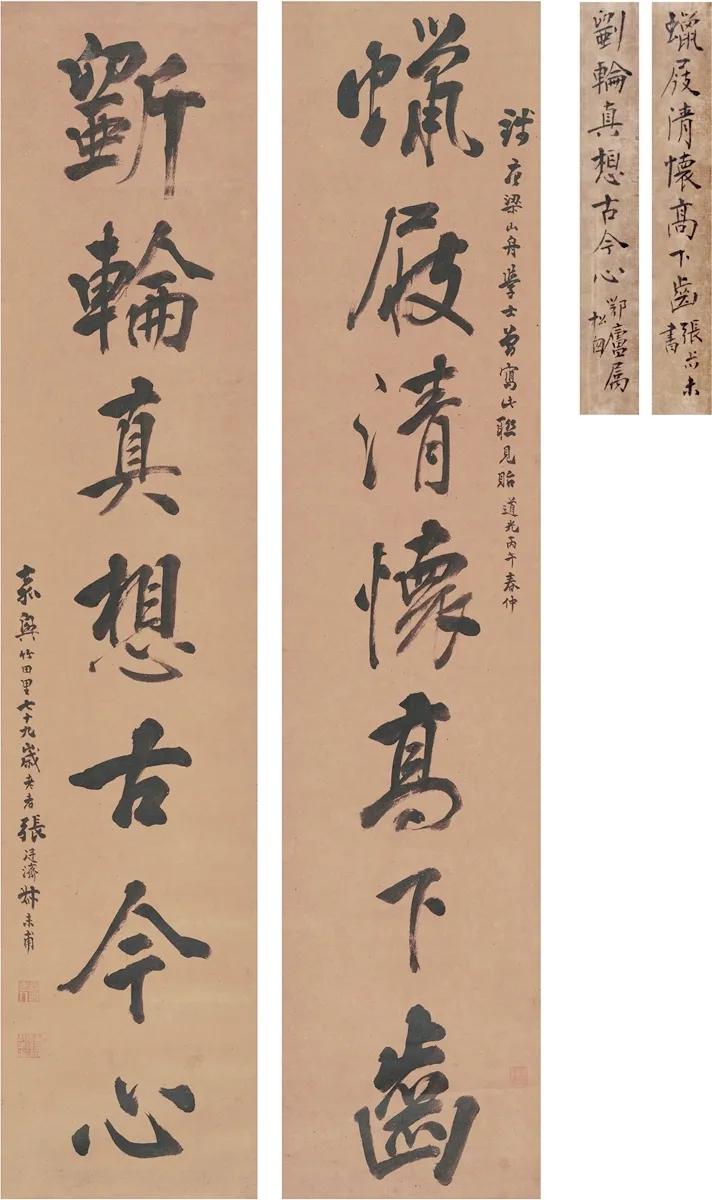 錢唐梁山舟學士曾寫此聯見貽 道光丙午春仲
蠟屐清懷高下齒
斲輪真想古今心
嘉興竹田里七十九歲老者張廷濟叔未甫
蠟屐清懷高下齒
張尗未
書
斲輪真想古今心
鄂廬属